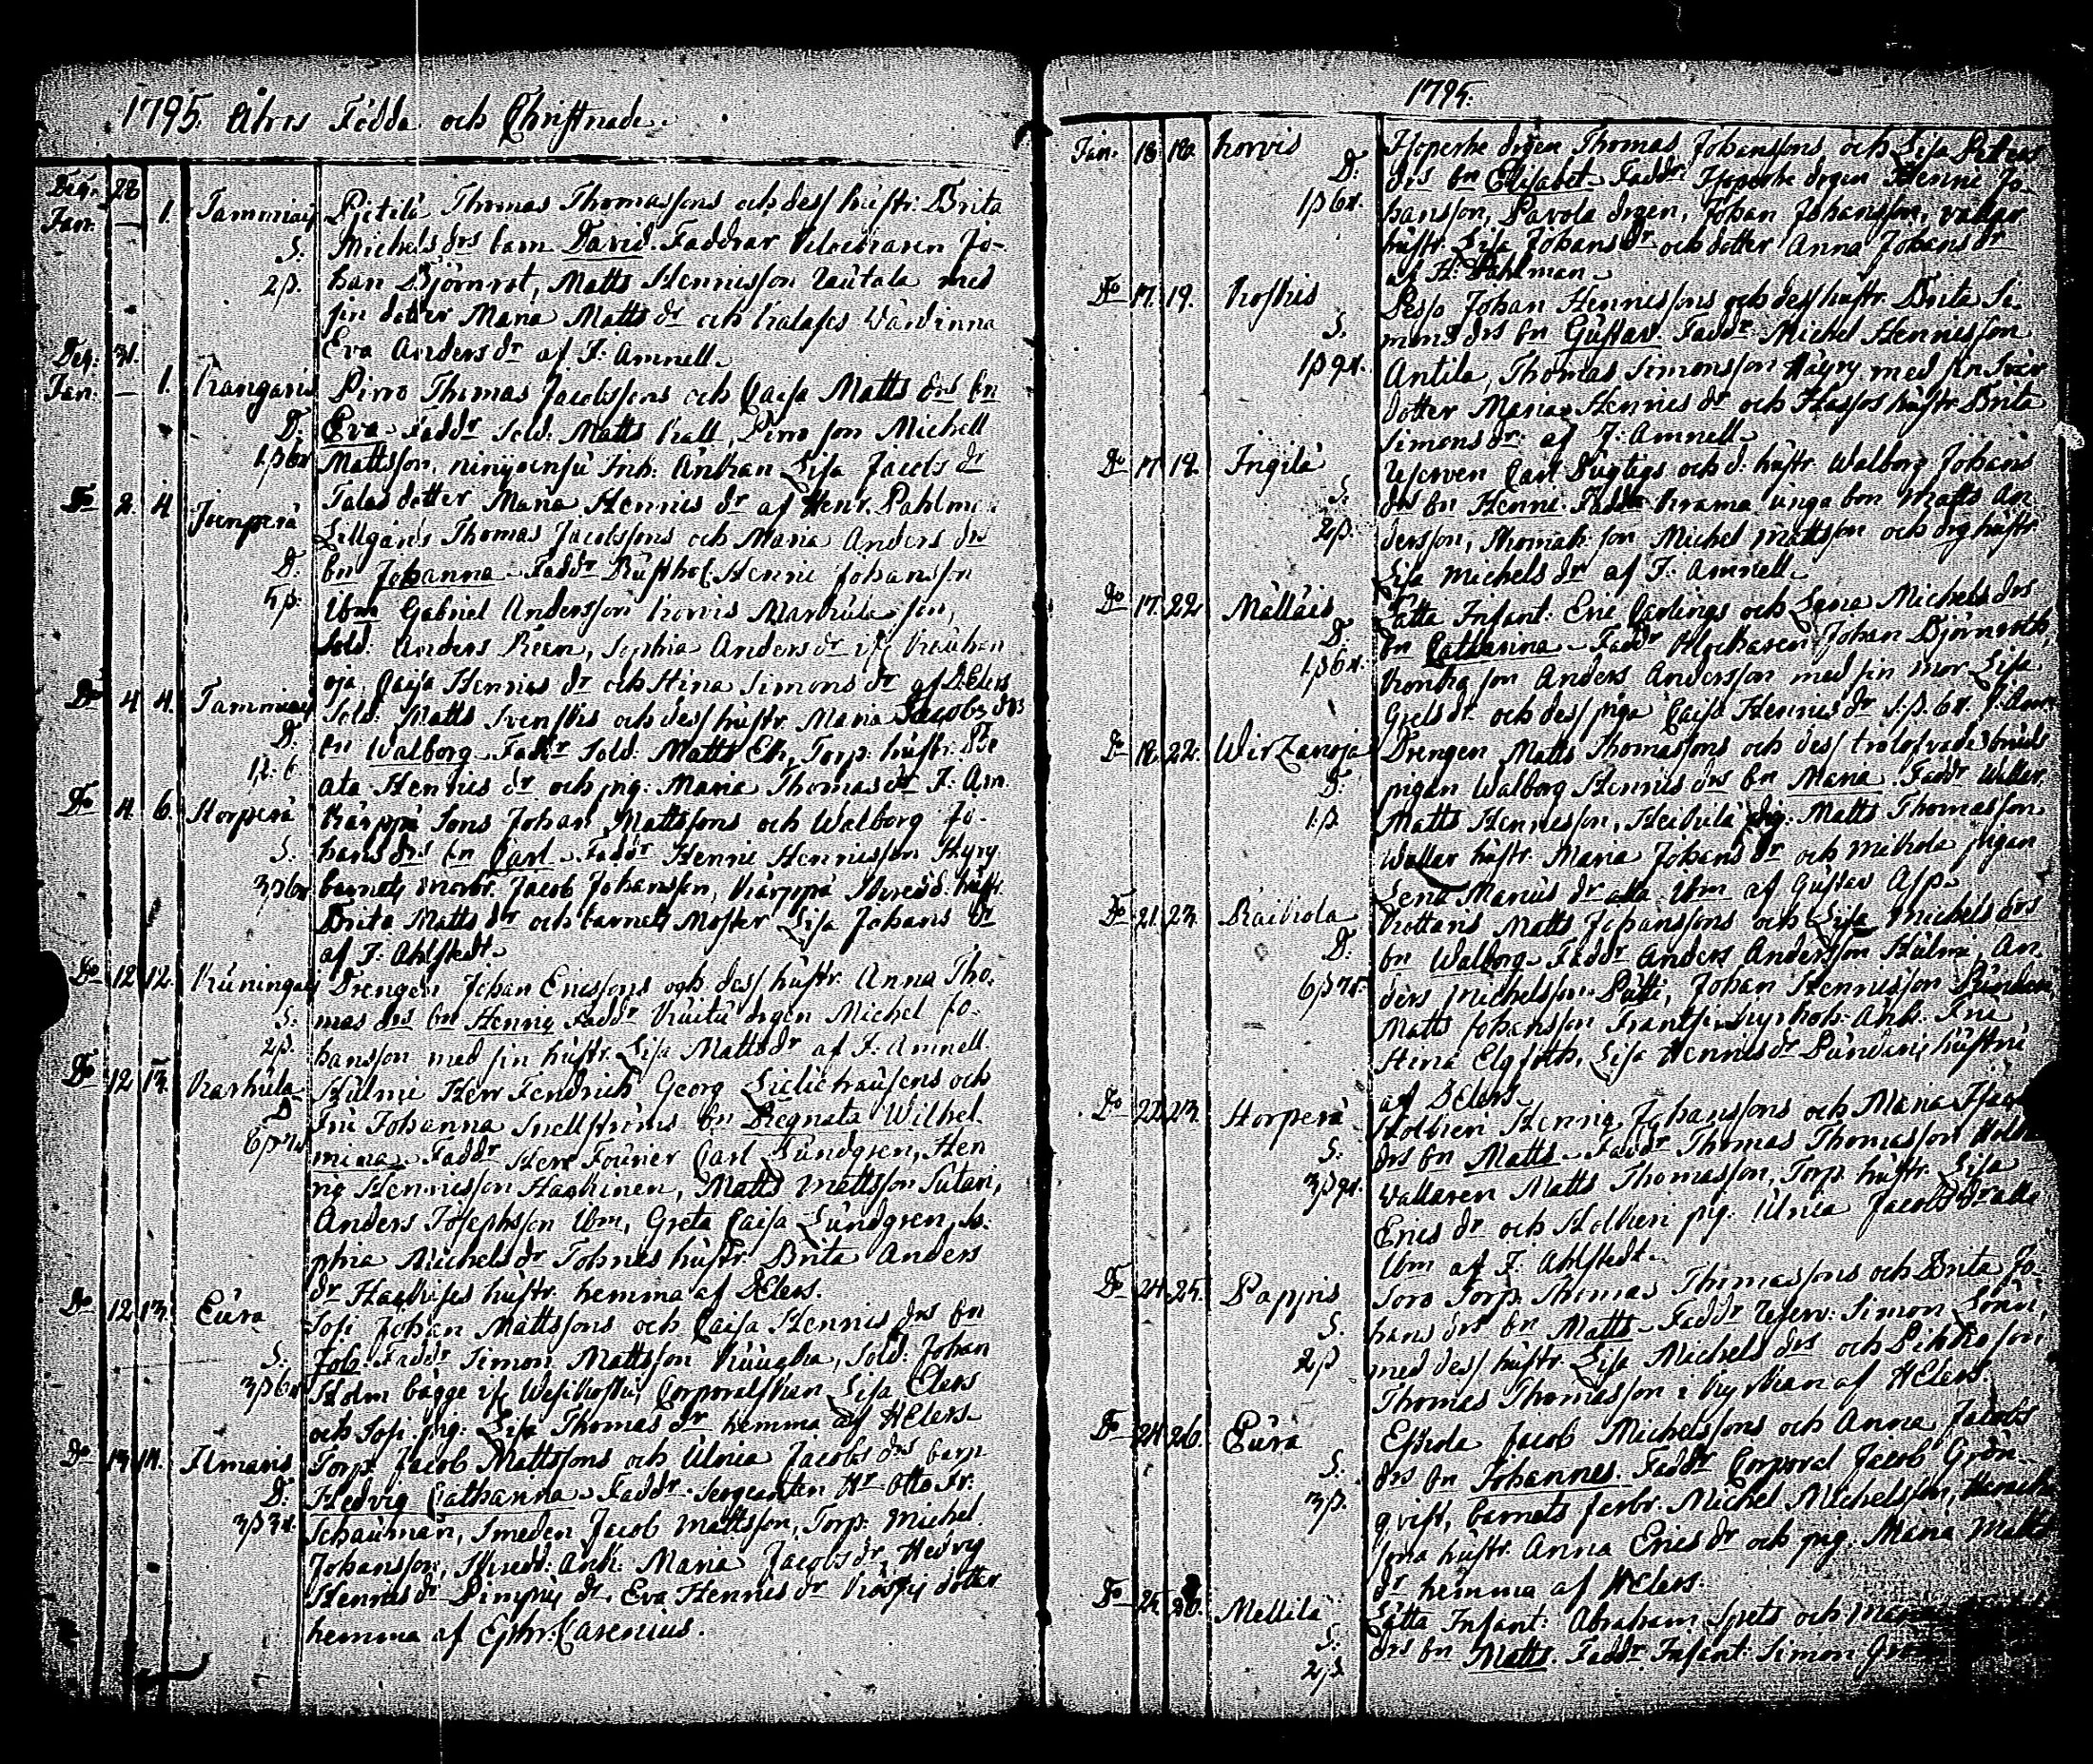 1795 Åhrs Födda och Christnade.
Dec. 28
Jan. — 1. Tammiais Pjetilä Thomas Thomassons och dess hustr. Brita
S. Michels drs barn David. Faddrar Klockaren Jo-
2 β. han Björnrot, Matts Hennisson Rautala med
sin dotter Maria Matts dr och Kalases Wärdinna
Eva Anders dr af J. Amnell.
Dec. 31.
Jan. — 1. Kangaris Pirro Thomas Jacobssons och Caisa Matts drs bn
D. Eva. Faddr Sold. Matts Kall, Pirro son Michell
Mattsson, Enkan Lisa Jacobs dr
Talas dotter Maria Hennis dr af Henr. Pahlm:
Do 2. 4 Junperä Lillgårds Thomas Jacobssons och Maria Anders drs
D. bn Johanna. Faddr Rusth. Henric Johansson
5 β. ibm Gabriel Andersson Korvis Markula son,
Sold. Anders Reen, Sophia Anders dr
oja, Caisa Hennis dr och Stina Simons dr af D. Elers
Do 4 4. Tammiais Sold. Matts Svenskis och dess hustr. Maria Jacobs drs
D. bn Walborg. Faddr Sold. Matts Ek, Torp. hustr. Be
ata Hennis dr och pig: Maria Thomas dr J. Am.
Do 4. 6. Horperä Kärppä Sons Johan Mattssons och Walborg Jo-
S. hans drs bn Carl. Faddr Henric Hennisson Hyry
barnets morbr. Jacob Johansson, Kärppä Skredd. hustr.
Brita Matts dr och barnets Moster Lisa Johans dr
af J. Ahlstedt.
Do 12 12. Kuningais Drengen Johan Ericssons och dess hustr. Anna Tho-
S. mas drs bn Hennig Faddr Kuitu drgen Michel Jo-
2 β. hansson med sin hustr. Lisa Matts dr af J. Amnell
Do 12 13. Karhula Hulmi Herr Fendrich Georg Lielichausens och
D. Fru Johanna Snellströms bn Regnata Wilhel-
mina. Faddr Herr Fourier Carl Lundgren, Hen
rig Hennisson Haghinen, Matts Mattsson Sutari,
Anders Josephsson ibm, Greta Caisa Lundgren, So-
phia Michels dr Tohnis hustr. Brita Anders
dr Haghises hustr. hemma af D. Elers.
Do 12 13. Eura Sofi Johan Mattssons och Caisa Hennis drs bn
S. Job. Faddr Simon Mattsson, Sold. Johan
Holm bägge, Corporalskan Lisa Elers
och Sofi pig: Lisa Thomas dr hemma af H Elers
Do 13. 14. Ilmaris Torp. Jacob Mattssons och Ulrica Jacobs drs barn
D. Hedvig Catharina. Faddr. Sergeanten Hr Otto Fr.
3 β 3 r. Schauman, Smeden Jacob Mattsson, Torp. Michel
Johansson, Skredd. änk. Maria Jacobs dr, Hedvig
Hennis dr, Eva Hennis dr dotter
hemma af Ephr. Carenius.
1795.
Jan. 18 18. Korvis Isoperhe drgen Thomas Johanssons och Lisa Petters
D. drs bn Elisabet. Faddr Isoperhe drgen Henric Jo-
1 β 6 r. hansson, Pavola drgen, Johan Johansson, vallar
hustr. Lisa Johans dr och dotter Anna Johans dr
af H. Pahlman.
Do 17. 19. Koskis Pesso Johan Hennissons och dess hustr. Brita Si-
S. mons drs bn Gustav. Faddr Michel Hennisson
1 β 9 r. Antila, Thomas Simonsson Häyry med sin Svär
dotter Maria Hennis dr och Hassos hustr. Brita
Simons dr af J: Amnell.
Do 17 18. Ingilä Reserven Carl Dugtigs och d. hustr. Walborg Johans
S. drs bn Henric. Faddr Krama unga bon Matts An
2 β. dersson, son Michel Mattsson och drg hustr.
Lisa Michels dr af J. Amnell.
Do 17. 22 Mälläis Lätta Infant. Eric Carlings och Lena Michels drs
D. bn Catharina. Faddr Klockaren Johan Björnroth,
1 β 6 r. Kontio son Anders Andersson med sin mor Lisa
Grels dr och dess piga Caisa Hennis dr 1. β. 6 r. J: Amn
Do 18 22. Wirzanoja Drengen Matts Thomassons och dess trolofvade bruds
D. pigan Walborg Hennis drs bn Maria. Faddr Wallar.
1 β. Matts Hennisson, Heikilä drg: Matts Thomasson
Wallar hustr. Maria Johans dr och Mikola pigan
Lena Marius dr alla ibm af Gustav Asp.
Do 21. 23. Raikola Kottaris Matts Johanssons och Lisa Michels drs
D. bn Walborg. Faddr Anders Andersson Hulmi, An-
ders Michelsson Pätti, Johan Hennisson Punden
Matts Johansson Frantsi, Kyrkoh. Änk. Fru
Stina Elgfoth, Lisa Hennis dr hustru
af D Elers.
Do 22. 23. Horperä Holvieri Hennig Johanssons och Maria
S. drs bn Matts. Faddr Thomas Thomasson
3 β 9 r. Vallaren Matts Thomasson, Torp. hustr. Lisa
Erics dr och Holvieri pig. Ulrica Jacobs dr alla
ibm af J. Ahlstedt.
Do 24. 25. Pappis Soro Torp. Thomas Thomassons och Brita Jo-
S. hans drs bn Matts. Faddr Reserv. Simon Lönn,
2 β med dess hustr. Lisa Michels drs och Pikko son
Thomas Thomasson i af H Elers.
Do 24 26. Eura Eskola Jacob Michelssons och Anna Jacobs
S. drs bn Johannes. Faddr Corporal Jacob Grön-
3 β. qvist, barnets farbr. Michel Michelsson,
hustr. Anna Erics dr och pig. Maria Matts
dr hemma af H Elers.
Do 25. 26. Mellilä Lätta Infant: Abraham Spets och
S. drs bn Matts. Faddr. Infant. Simon
2 β